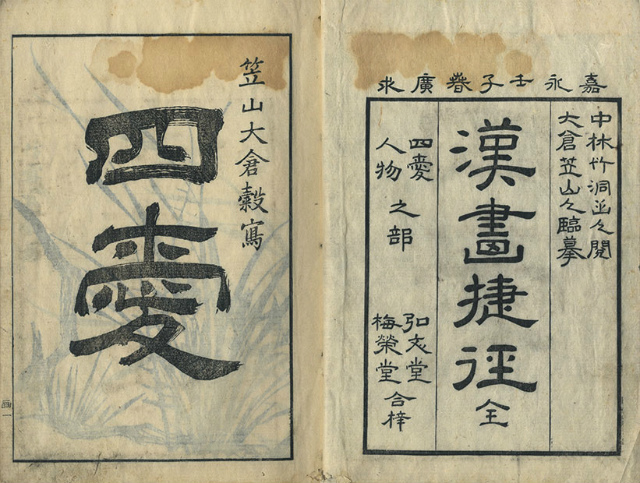 嘉永壬子春廣求
中林竹洞閲
大倉笠山臨摹
漢畫捷徑全
四愛
人物
之部
弘文堂
梅榮堂
合梓
笠山大倉穀寫
四愛